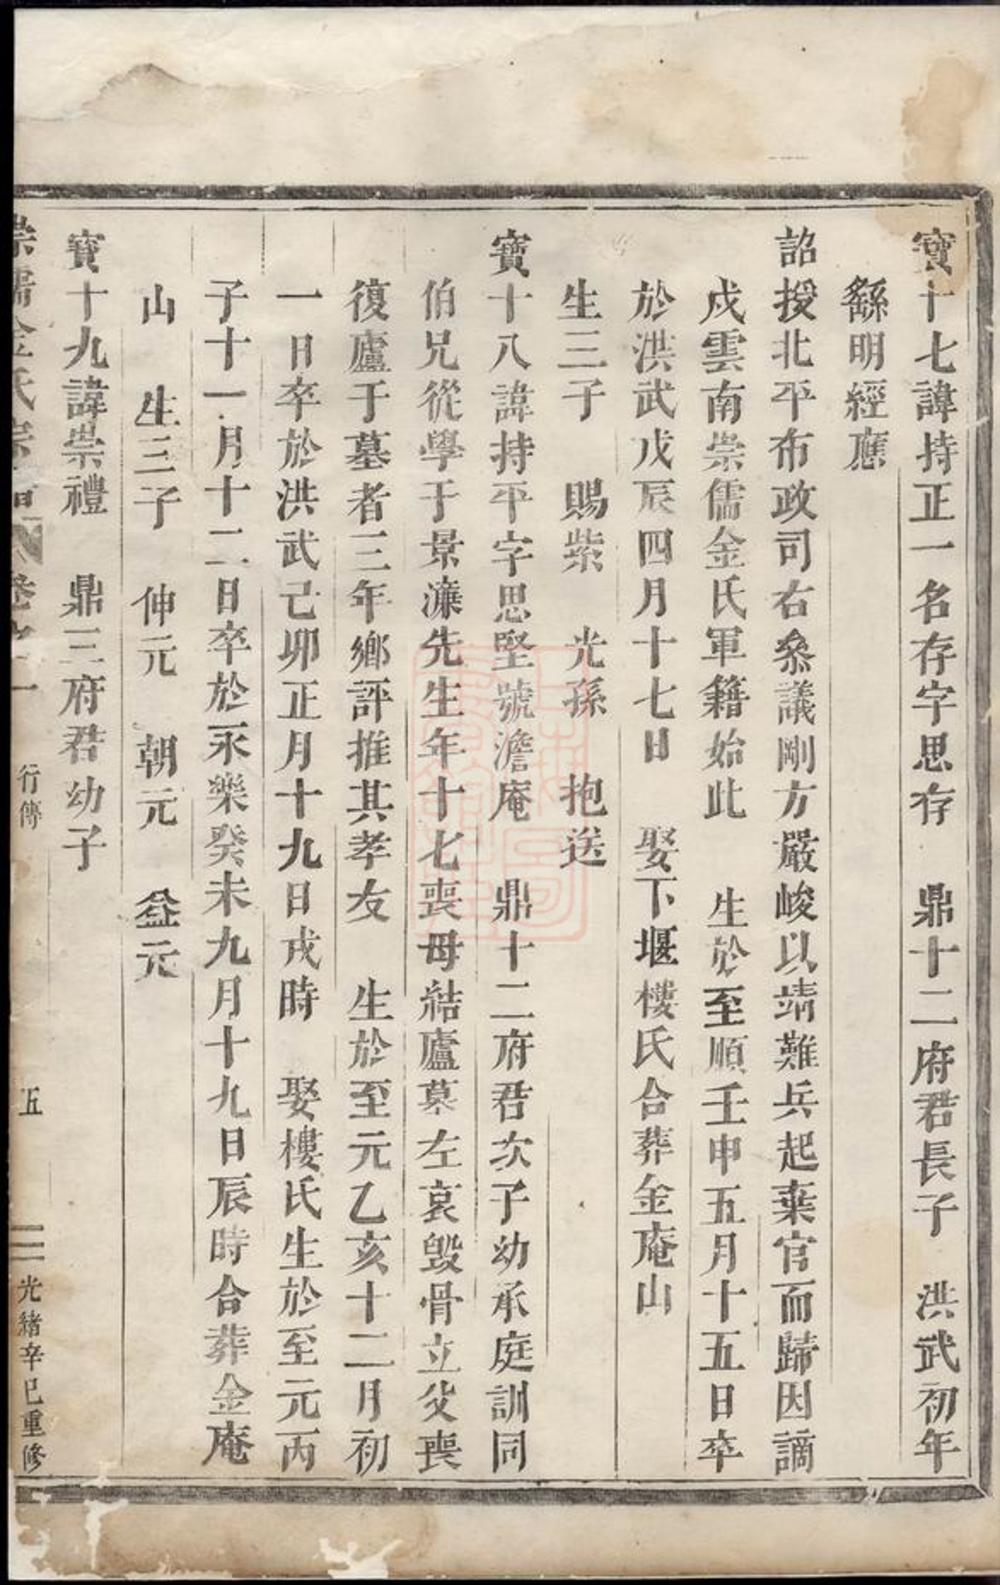 寶十七諱持正一名存字思存　鼎十二府君長子　洪武初年
繇明經應
詔授北平布政司右叅議剛方嚴峻以靖難兵起棄官而歸因謫
戍雲南崇儒金氏軍籍始此　生於至順壬申五月十五日卒
於洪武戊辰四月十七日　娶下堰樓氏合葬金庵山
生三子　賜紫　光孫　抱送
寶十八諱持平字思堅號澹庵　鼎十二府君次子幼承庭訓同
伯兄從學于景濂先生年十七喪母結廬墓左哀毀骨立父喪
復廬于墓者三年鄉評推其孝友　生於至元乙亥十二月初
一日卒於洪武己卯正月十九日戌時　娶樓氏生於至元丙
子十一月十二日卒於永樂癸未九月十九日辰時合葬金庵
山　生三子　伸元　朝元　益元
寶十九諱崇禮　鼎三府君幼子
崇儒金氏宗譜　卷之一　行傳　五　光緒辛巳重修